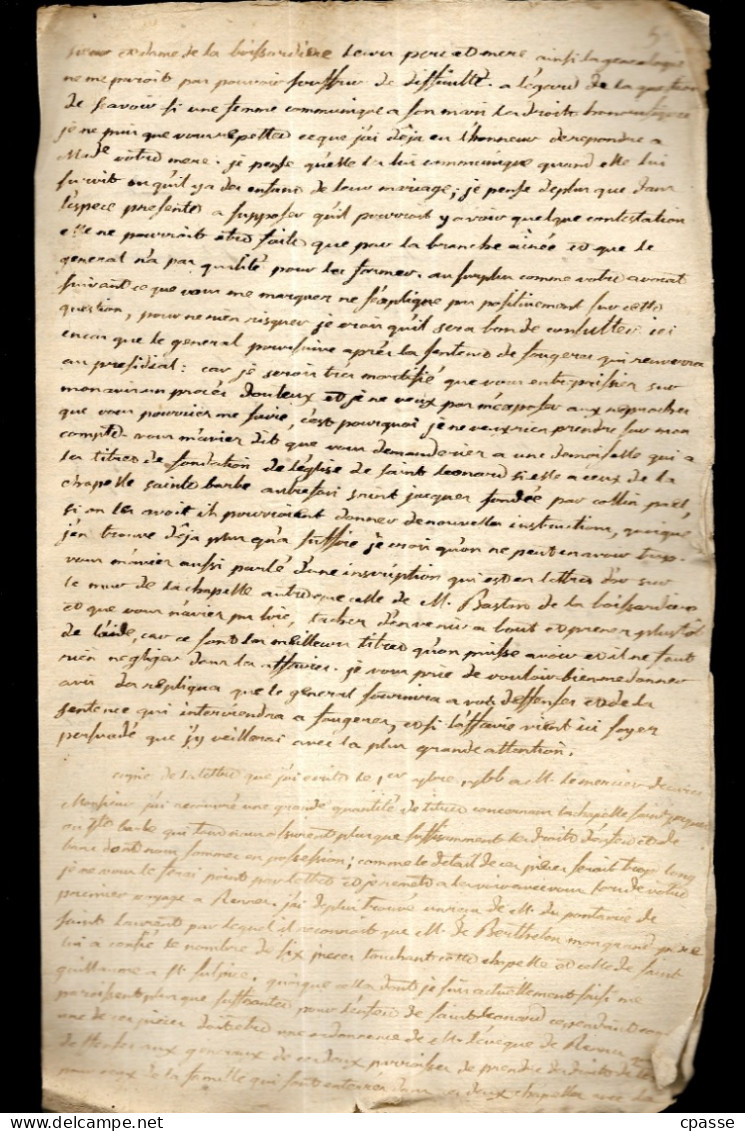 5
sieur et dame de la boissardiere leurs pere et mere ainsi la genealogie
ne me paroit pas pouvoir souffrir de difficulté. a l'égard de la question
de scavoir si une femme communique a son mari les droits honorifiques
je ne puis que vous repetter ce que j'ai déja eu l'honneur de repondre a
Mad.e votre mere. je pense qu'elle les lui communique quand elle lui
survit ou qu'il y a des enfans de leur mariage; je pense de plus que dans
l'espece presente a supposer qu'il pourroit y avoir quelque contestation
elle ne pourroit etre faite que par la branche ainée et que le
general n'a pas qualité pour les former. au surplus comme votre avocat
suivant ce que vous me marquez ne s'explique pas positivement sur cette
question, pour ne rien risquer je crois qu'il sera bon de consulter ici
encas que le general poursuive aprés la sentence de fougeres qui renverra
au presidial: car je serois trés mortifié que vous entreprissiez sur
mon avis un procés douteux et je ne veux pas m'exposer aux reproches
que vous pourriez me faire, c'est pourquoi je ne veux rien prendre sur mon
compte. vous m'aviez dit que vous demanderiez a une demoiselle qui a
les titres de fondation de l'église de saint Leonard si elle a ceux de la
chapelle sainte barbe autrefois saint jacques fondée par collin
si on les avoit ils pourroient donner de nouvelles instructions, quoique
j'en trouve déja plus qu'a suffire je crois qu'on ne peut en avoir trop.
vous m'aviez aussi parlé d'une inscription qui est en lettres d'or sur
le mur de la chapelle autre que celle de M. de la boissardiere
et que vous n'aviez pu lire, tachez d'en venir a bout et prenez plustôt
de l'aide, car ce sont les meilleurs titres qu'on puisse avoir et il ne faut
rien negliger dans les affaires. je vous prie de vouloir bien me donner
avis des repliques que le general fournira a vos deffenses et de la
sentence qui interviendra a fougeres, et si l'affaire vient ici soyez
persuadé que j'y veillerai avec la plus grande attention.
copie de la lettre que j'ai écrite le 1er a M. le mercier
Monsieur j'ai recouvré une grande quantité de titres concernans la chapelle saint jacques
ou Ste barbe qui tous nous assurent plus que suffisamment les droits d'enfeu et de
banc dont nous sommes en possession; comme le détail de ces pieces seroit trop long
je ne vous le ferai point par lettre et je remets a les voir avec vous lors de votre
premier voyage a Rennes. j'ai de plus trouvé un reçu de M. du pontavice de
saint Laurent par lequel il reconnoit que M. de Berthelon mon grand pere
lui a confié le nombre de six pieces touchant cette chapelle et celle de saint
guillaume a St sulpice, quoique celles dont je suis actuellement saisi me
paroissent plus que suffisantes pour l'enfeu de saint Leonard cependant comme
une de ces pieces doit etre une ordonnance de M. l'éveque de Rennes
deffenses aux generaux de ces deux paroisses de prendre de droits de
pour ceux de la famille qui sont enterrés dans ces deux chapelles avec la
cpasse